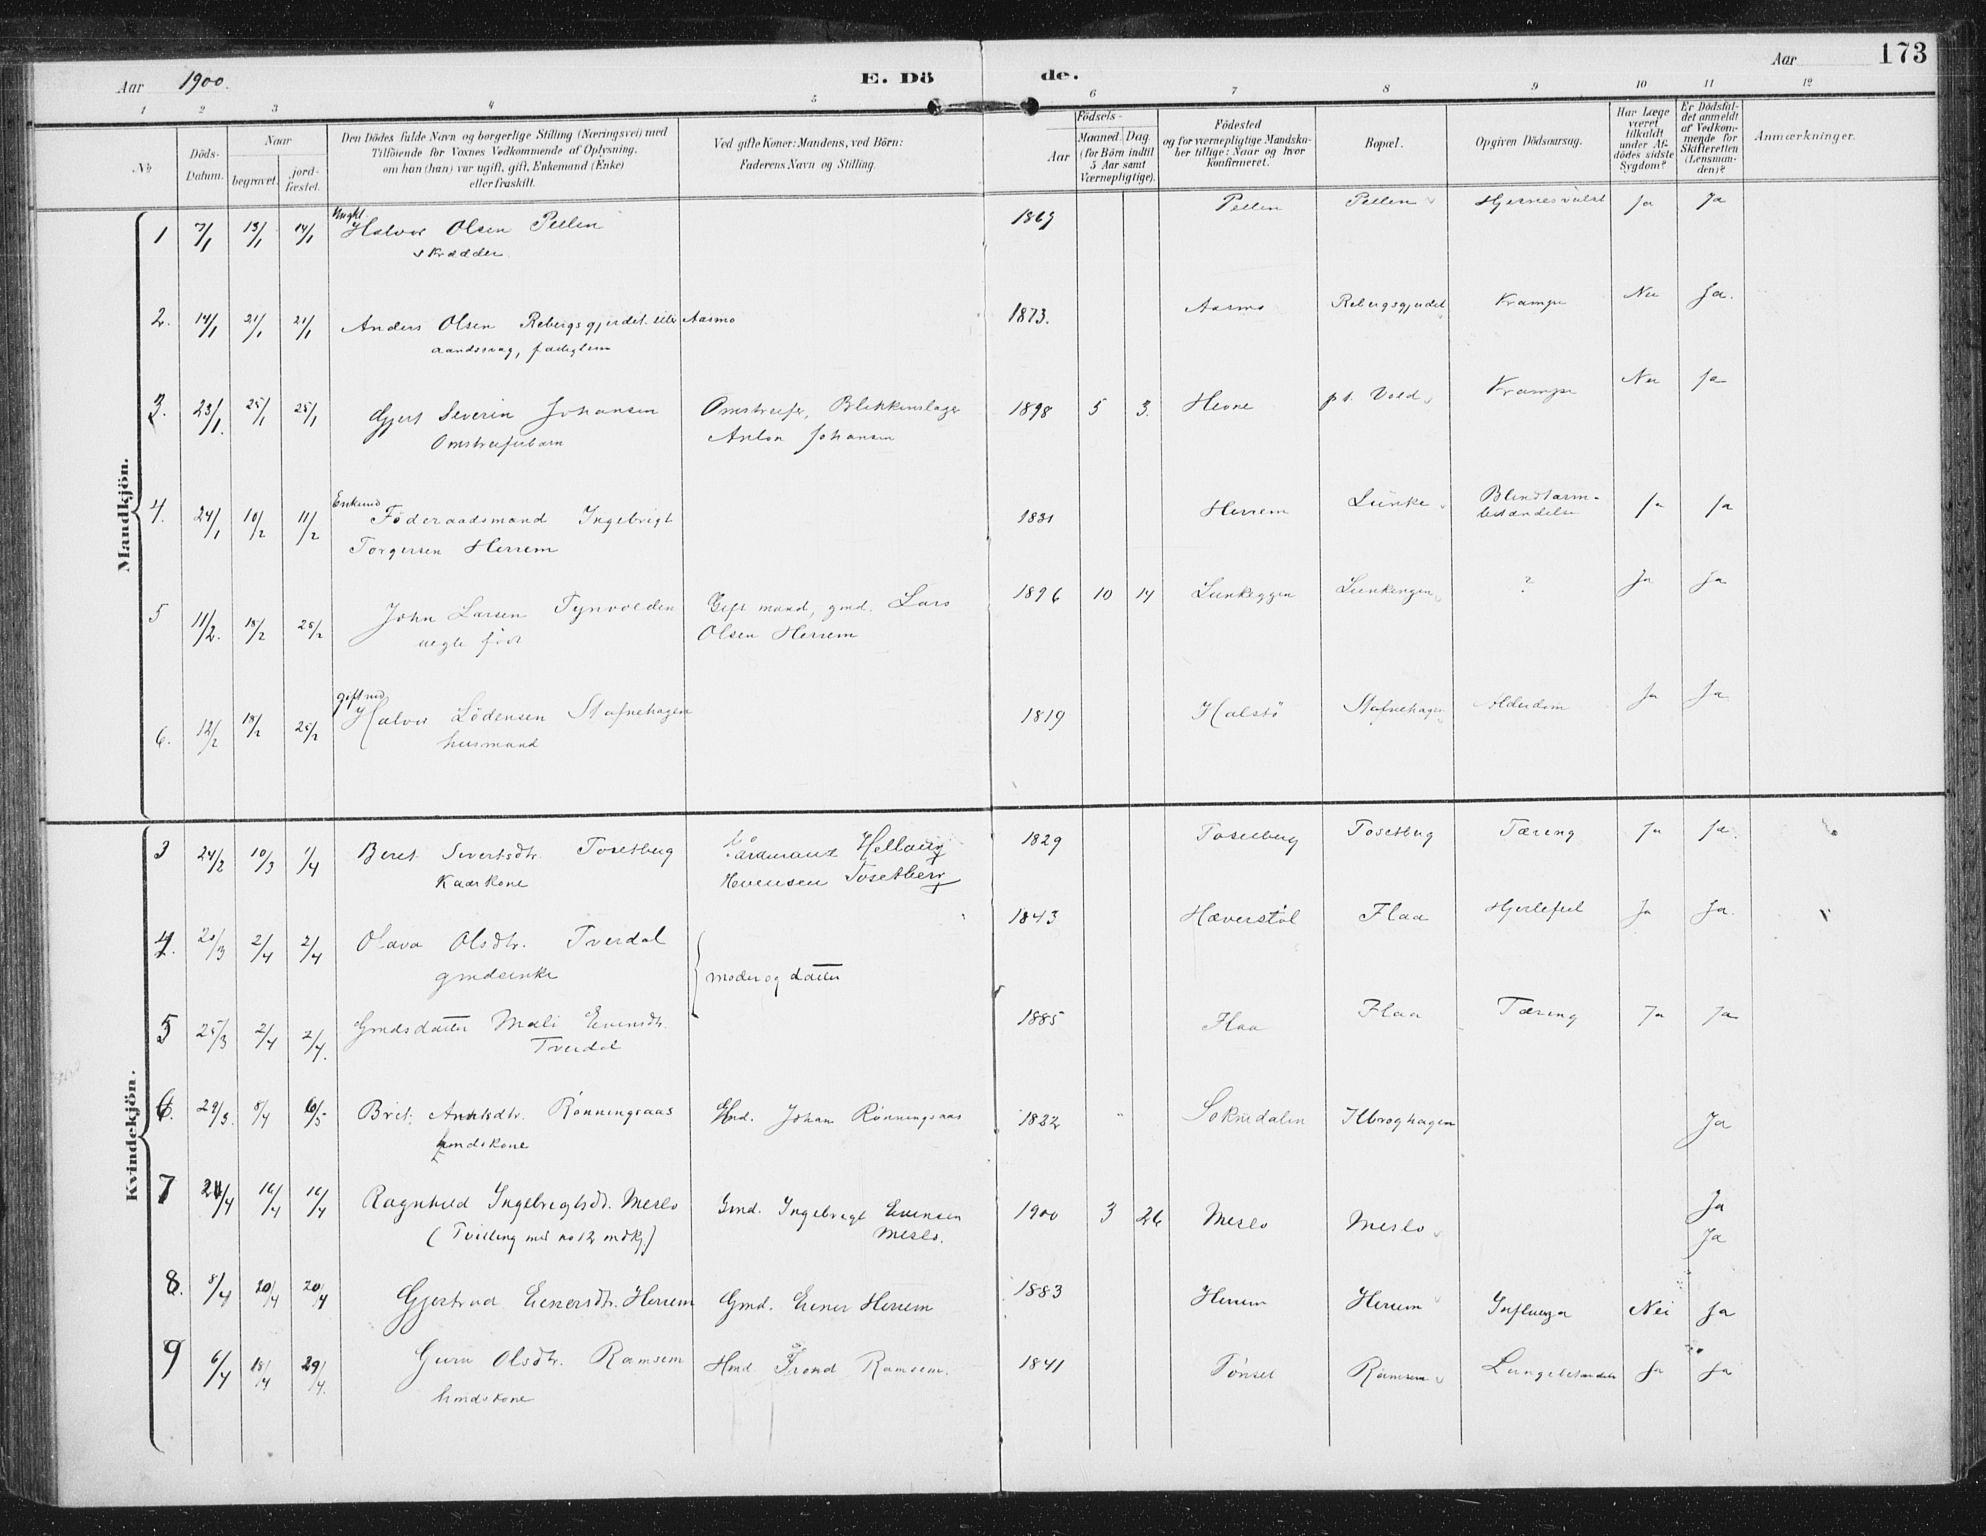 Aar 1900. E. Dö de. Aar 173
1 2 3 4 5 6 7 8 9 10 11 12
No
Döds-Datum.
Naar
begravet.
jord-fæstet.
Den Dödes fulde Navn og borgerlige Stilling (Næringsvei) med
Tilföiende for Voxnes Vedkommende af Oplysning,
om han (hun) var ugift, gift, Enkemand (Enke)
eller fraskilt.
Ved gifte Koner: Mandens, ved Börn:
Faderens Navn og Stilling.
Födsels-
Aar
Maaned. Dag
(for Börn indtil
5 Aar samt
Værnepligtige).
Födested
og for værnepligtige Mandska-
ber tillige: Naar og hvor
konfirmeret.
Bopæl.
Opgiven Dödsaarsag.
Har Læge
været
tilkaldt
under Af-
dödes sidste
Sygdom?
Er Dödsfal-
det anmeldt
af Vedkom-
mende for
Skifteretten
(Lensman-
den)?
Anmærkninger.
Mandkjön.
Ungkl
1 7/1 13/1 14/1 Halvor Olsen Pellen 1869 Pellen Pellen Ja Ja
skrædder
2. 14/1 21/1 21/1 Anders Olsen Rebergsgjerdet eller Aasmo 1873. Aasmo Rebergsgjerdet Krampe Nei Ja.
aandssvag, fattiglem
3. 23/1. 25/1 25/1 Gjert Severin Johansen Omstreifer, Blikkenslager 1898 5 3. Hevne pt. Vold Krampe Nei Ja
Omstreiferbarn Anton Johansen
Enkemd
4. 24/1 10/2 11/2 Föderaadsmand Ingebrigt 1831 Herrem Lunke Blindtarm-betændelse Ja Ja
Torgersen Herrem
5 11/2. 18/2 25/2 John Larsen Tynvolden Gift mand, gmd. Lars 1896 10 14 Lunkeggen Lunkengen ? Ja Ja
uegte födt Olsen Herrem
gift md
6. 12/2 18/2 25/2 Halvor Lödensen Stafnehagen 1819 Halstö Stafnehagen Alderdom Ja Ja
husmand
Kvindekjön.
3 24/2 10/3 1/4 Beret Sivertsdtr. Tosetberg 1829 Tosetberg Tosetberg Tæring Ja Ja.
Kaarkone Tosetberg
4. 20/3 2/4 2/4 Olava Olsdtr. Tverdal 1843 Hæverstöl Flaa Hjertefeil Ja Ja.
gmdsenke { moder og datter
5 25/3 2/4 2/4. Gmdsdatter Mali Evensdtr. 1885 Flaa Flaa Tæring Ja Ja
Tverdal
6. 29/3. 8/4 6/5 Brit Arntsdtr. Rönningsaas Hmd. Johan Rönningsaas 1822 " Soknedalen Ilbroghagen Ja
hmdskone
7 24/4 16/4 16/4 Ragnhild Ingebrigtsdt. Meslo Gmd. Ingebrigt Evensen 1900 3 26 Meslo Meslo Ja
(Tvilling med no 12 mdkj.) Meslo. Ja
8. 8/4 20/4 20/4 Gjertrud Einersdtr. Herrem Gmd. Einer Herrem 1883 Herrem Herrem Influenza Nei Ja
9 6/4 18/4 29/4. Guru Olsdtr. Ramsem Hmd. Trond Ramsem. 1841 Tönset Ramsem Lungebetændelse Ja Ja
hmdskone